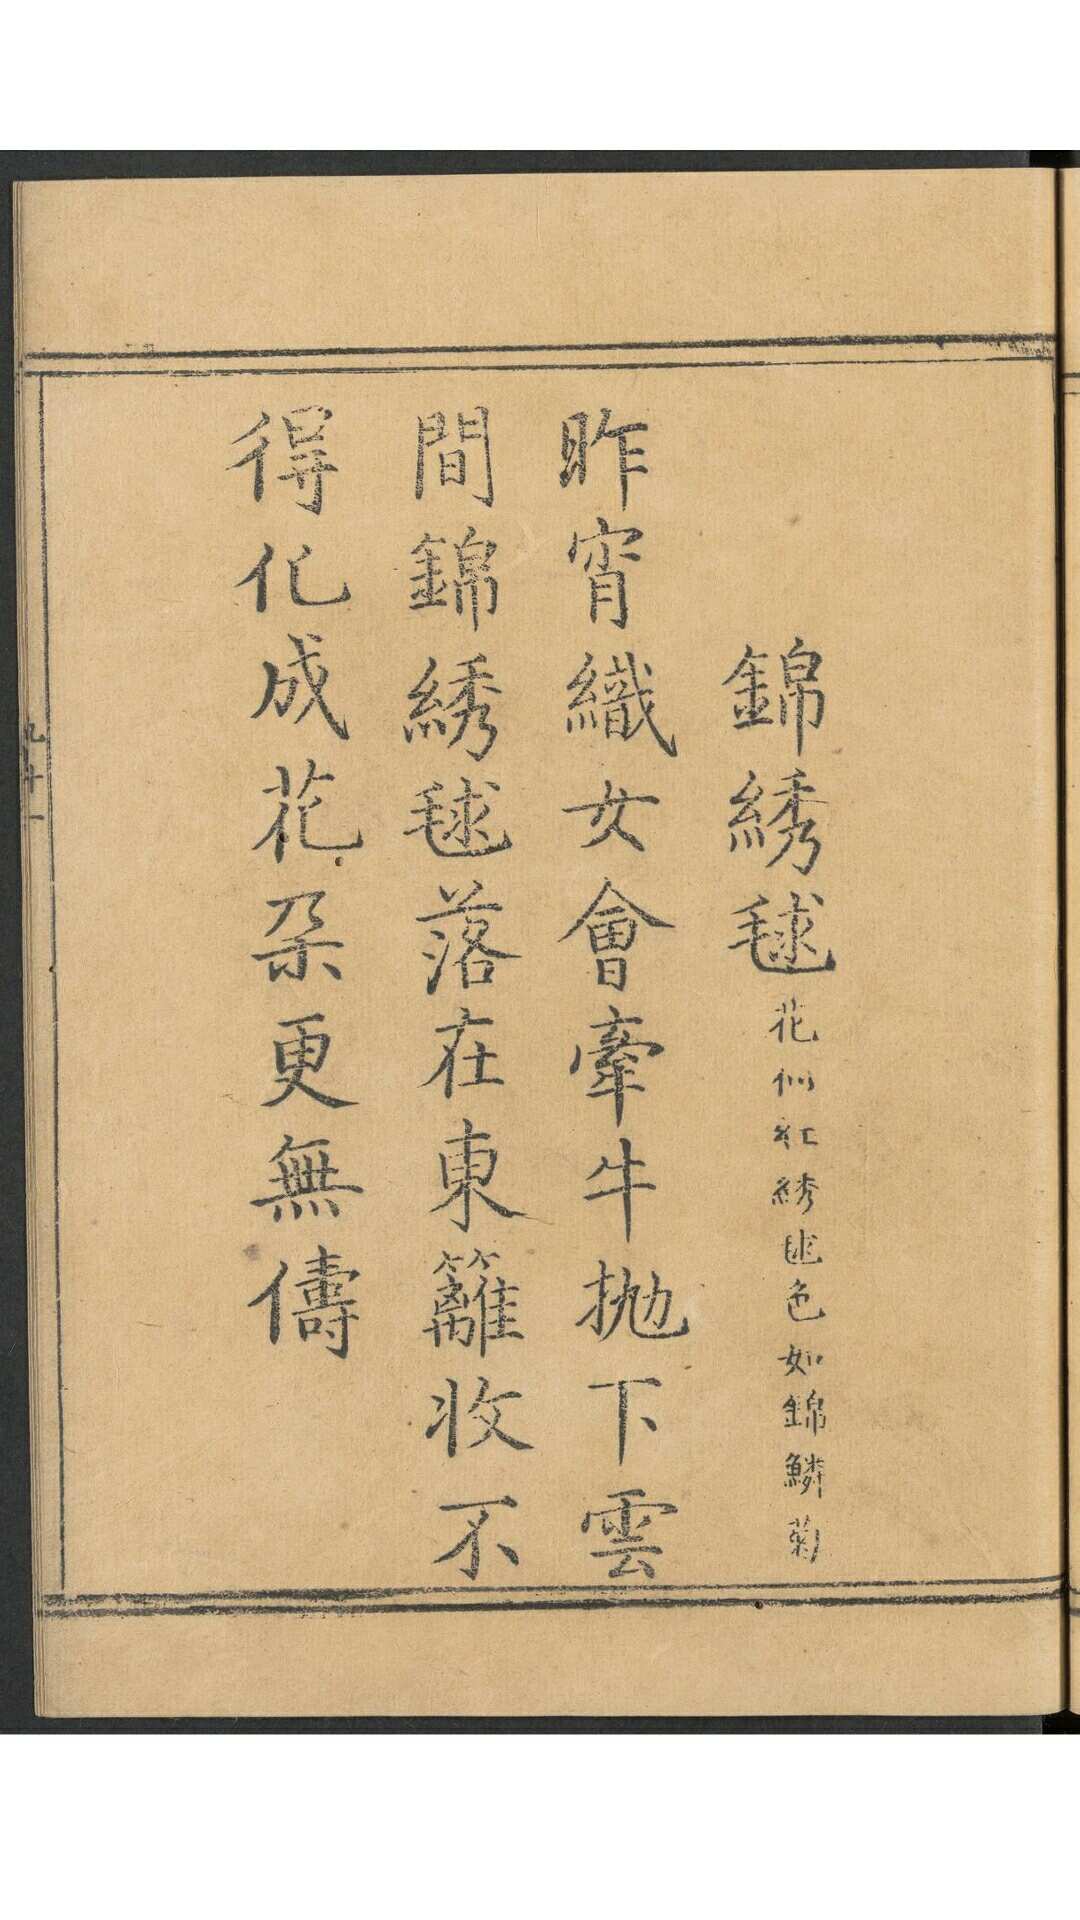 錦綉毬花似紅綉毬色如錦鱗菊
昨宵織女會牽牛拋下雲
間錦綉毬落在東籬收不
得化成花朶更無儔
九十一